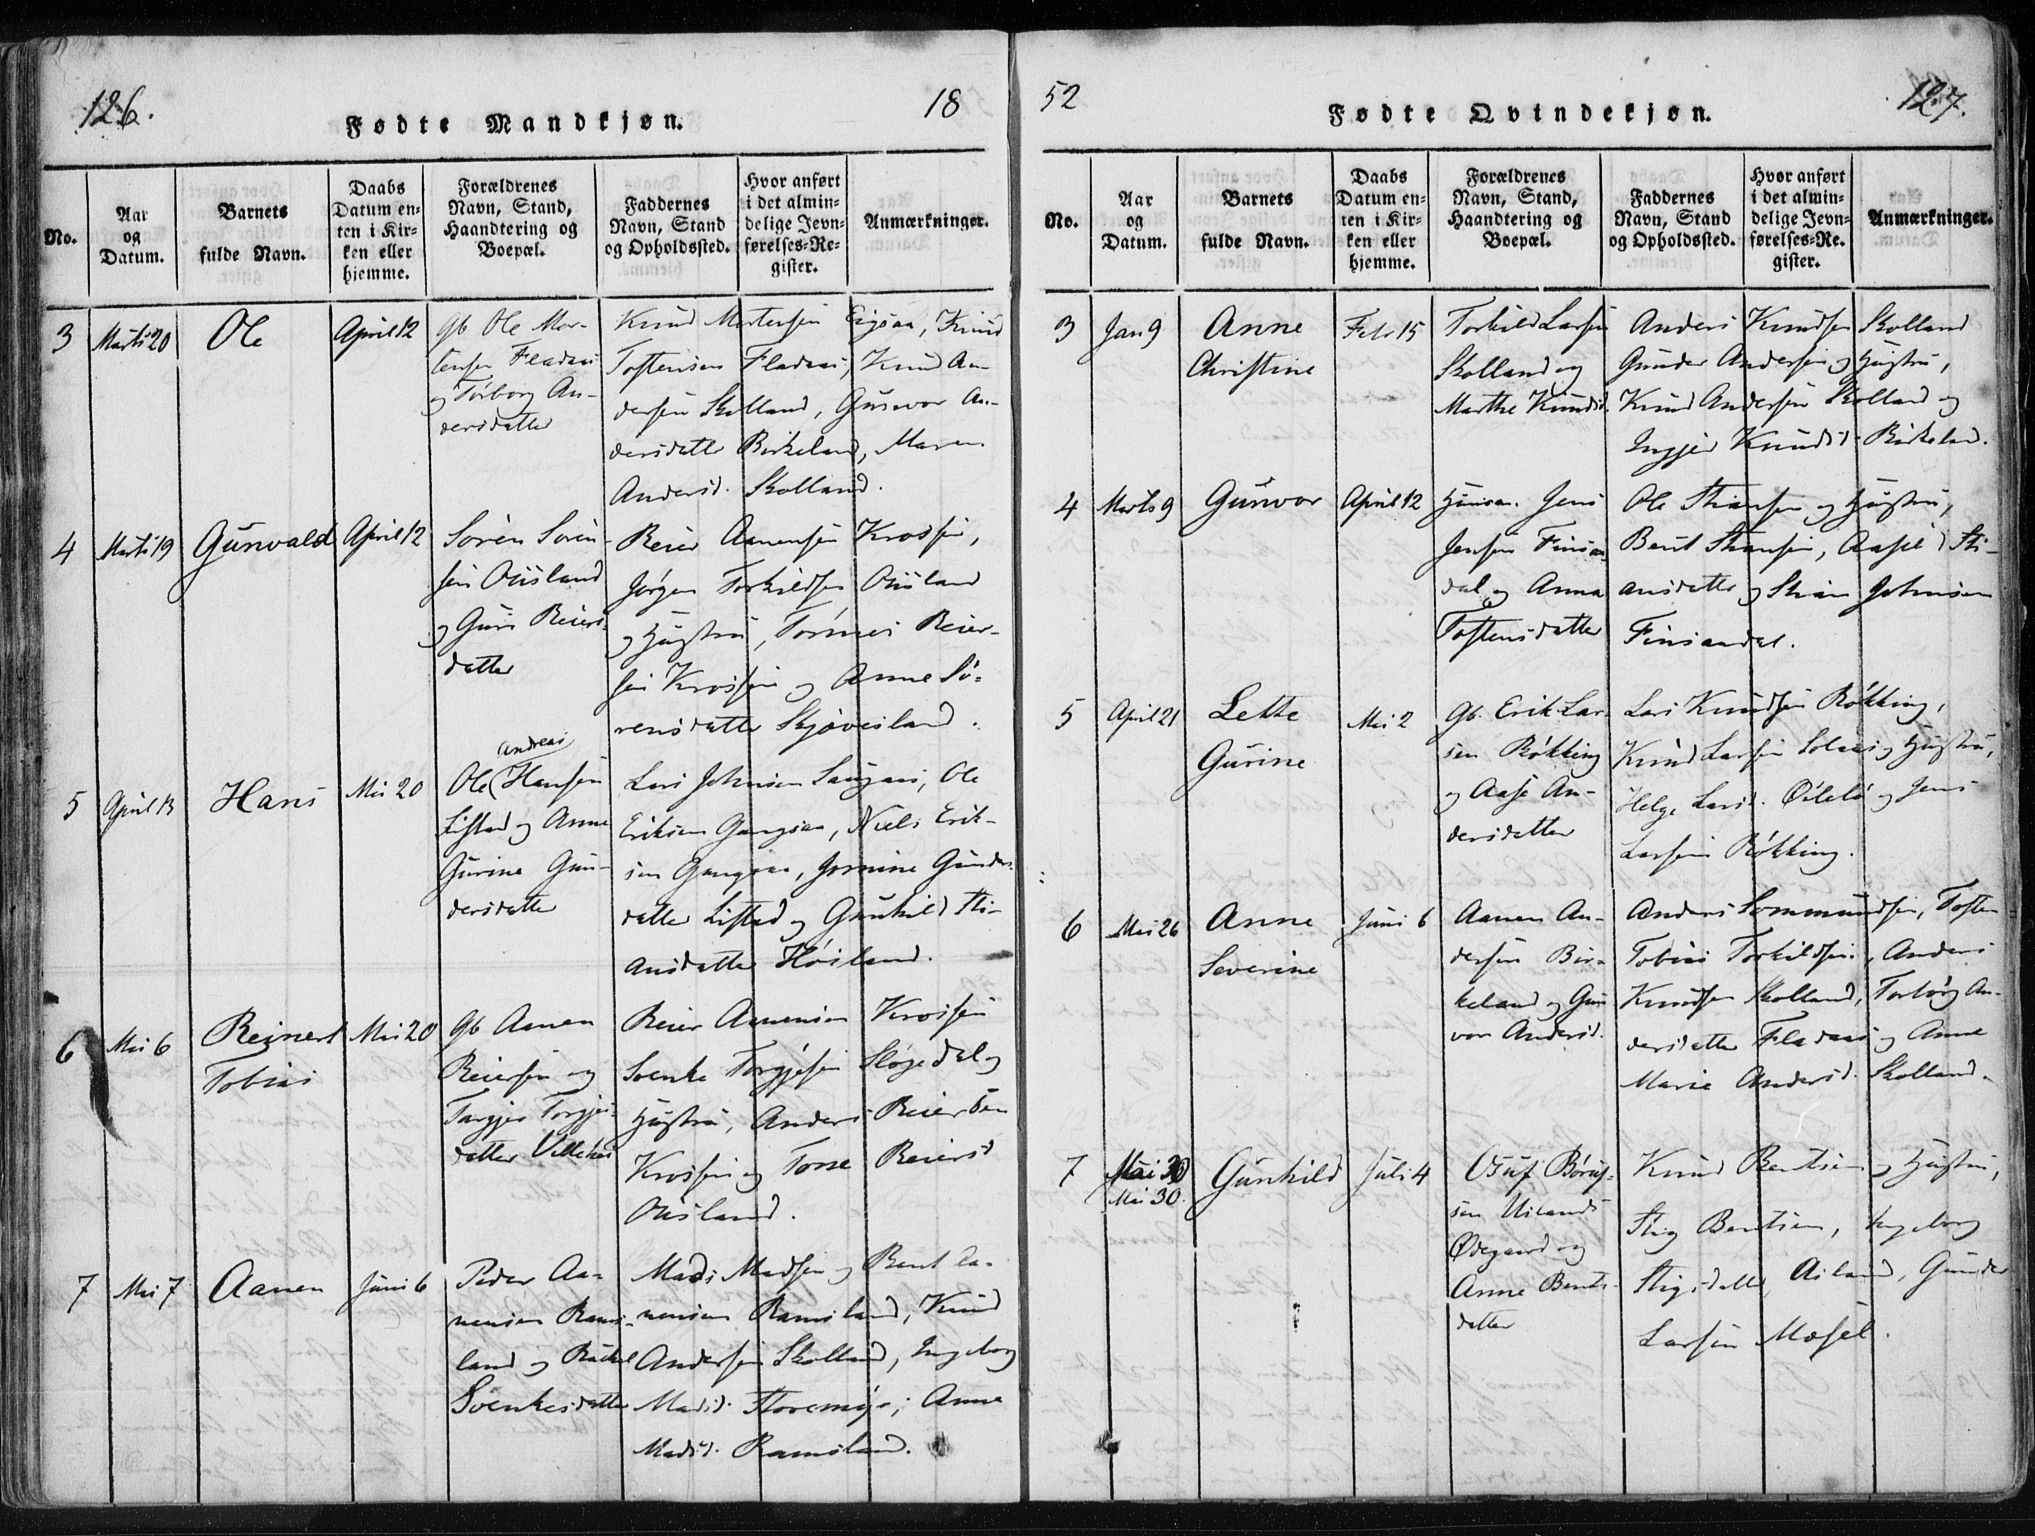 126.
Fødte Mandkjøn.
18
No.
Aar og Datum.
Barnets fulde Navn.
Daabs Datum enten i Kirken eller hjemme.
Forældrenes Navn, Stand, Haandtering og Boepæl.
Faddernes Navn, Stand og Opholdssted.
Hvor anført i det almindelige Jevnførelses-Register.
Anmærkninger.
3
Marts 20
Ole
April 12
Gb Ole Mor-
tensen Fladaas
og Torborg An-
dersdatter
Knud Mortensen Eigsaa, Knud
Tostensen Fladaas, Knud An-
dersen Skolland, Gunvor An-
dersdatter Birkeland, Maren
Andersd. Skolland.
4
Marts 19
Gunvald
April 12
Søren Søren-
sen Ousland
og Guri Reiers-
datter
Reier Aanensen Krossen,
Jørgen Torkildsen Ousland
og Hustru, Tønnes Reier-
sen Krossen og Anne Sø-
rensdatter Skjøvesland.
5
April 13
Hans
Mai 20
Andreas
Ole Hansen
Listad og Anne
Gurine Gun-
dersdatter
Lars Johnsen Saugaas, Ole
Eriksen Gangsaa, Niels Erik-
sen Gangsaa, Gunders-
datter Listad og Gunhild Sti-
ansdatter Høiland.
6
Mai 6
Reinert
Tobias
Mai 20
Gb Aanen
Reiersen og
Targjer Torgjes-
datter
Reier Aanensen Krossen
Svenke Torgjesen Sløgedal og
Hustru, Anders Reiersen
Krossen og Tone Reiersd
Ousland.
7
Mai 7
Aanen
Juni 6
Peder Aa-
nensen Rams-
land og Rachel
Svenkesdatter
Mads Madsen og Bent Aa-
nensen Ramsland, Knud
Andersen Skolland, Ingeborg
Madsd. Storemyr; Anne
Madsd. Ramsland.
52
Fødte Qvindekjøn.
127.
No.
Aar og Datum.
Barnets fulde Navn.
Daabs Datum enten i Kirken eller hjemme.
Forældrenes Navn, Stand, Haandtering og Boepæl.
Faddernes Navn, Stand og Opholdssted.
Hvor anført i det almindelige Jevnførelses-Re. gister.
Anmærkninger.
3
Jan 9
Anne
Christine
Feb 15
Torkild Larsen
Skolland og
Marthe Knudsd.
Anders Knudsen Skolland
Gunder Andersen og Hustru,
Knud Andersen Skolland og
Ingjer Knudsd. Birkeland.
4
Marts 9
Gunvor
April 12
Husm. Jens
Jensen Finsaa-
dal og Anna
Tostensdatter
Ole Stiansen og Hustru,
Bent Stiansen, Aasile Sti-
ansdatter og Stian Johnsen
Finsaadal.
5
April 21
Lette
Gurine
Mai 2
Gb. Erik Lar-
sen Røkking
og Aase An-
dersdatter
Lars Knudsen Røkking,
Knud Larsen Solaas og Hustru,
Helge Larsd. og Jens
Larsen Røkking.
6
Mai 26
Anne
Severine
Juni 6
Aanen An-
dersen Bir-
keland og Gun-
vor Andersd.
Anders Sommundsen, Tosten
Tobias Torkildsen, Anders
Knudsen Skolland, Torborg An-
dersdatter Fladaas og Anne
Marie Andersd. Skolland.
7
Mai 30
Mai 30.
Gunhild
Juli 4
Osuf Børuf-
sen Uilands
Ødegaard og
Anne Bents-
datter
Knud Bentsen og Hustru,
Stig Bentsen, Ingeborg
Stigsdatter Aaland, Gunder
Larsen Mosel.